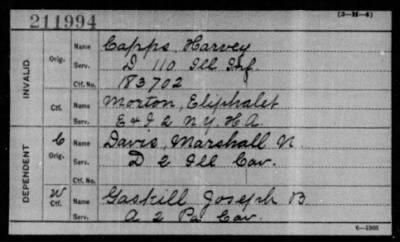 211994
(3-H-4)
INVALID
Orig.
Name Capps, Harvey
Serv. D. 110 Ill Inf.
Ctf. No. 183702
Ctf.
Name Morton, Eliphalet
Serv. E & I 2 N.Y. H.A.
DEPENDENT
C
Orig.
Name Davis, Marshall N.
Serv. D 2 Ill Cav.
Ctf. No.
W
Ctf.
Name Gaskill Joseph B
Serv. A 2 Pa Cav.
6-1905